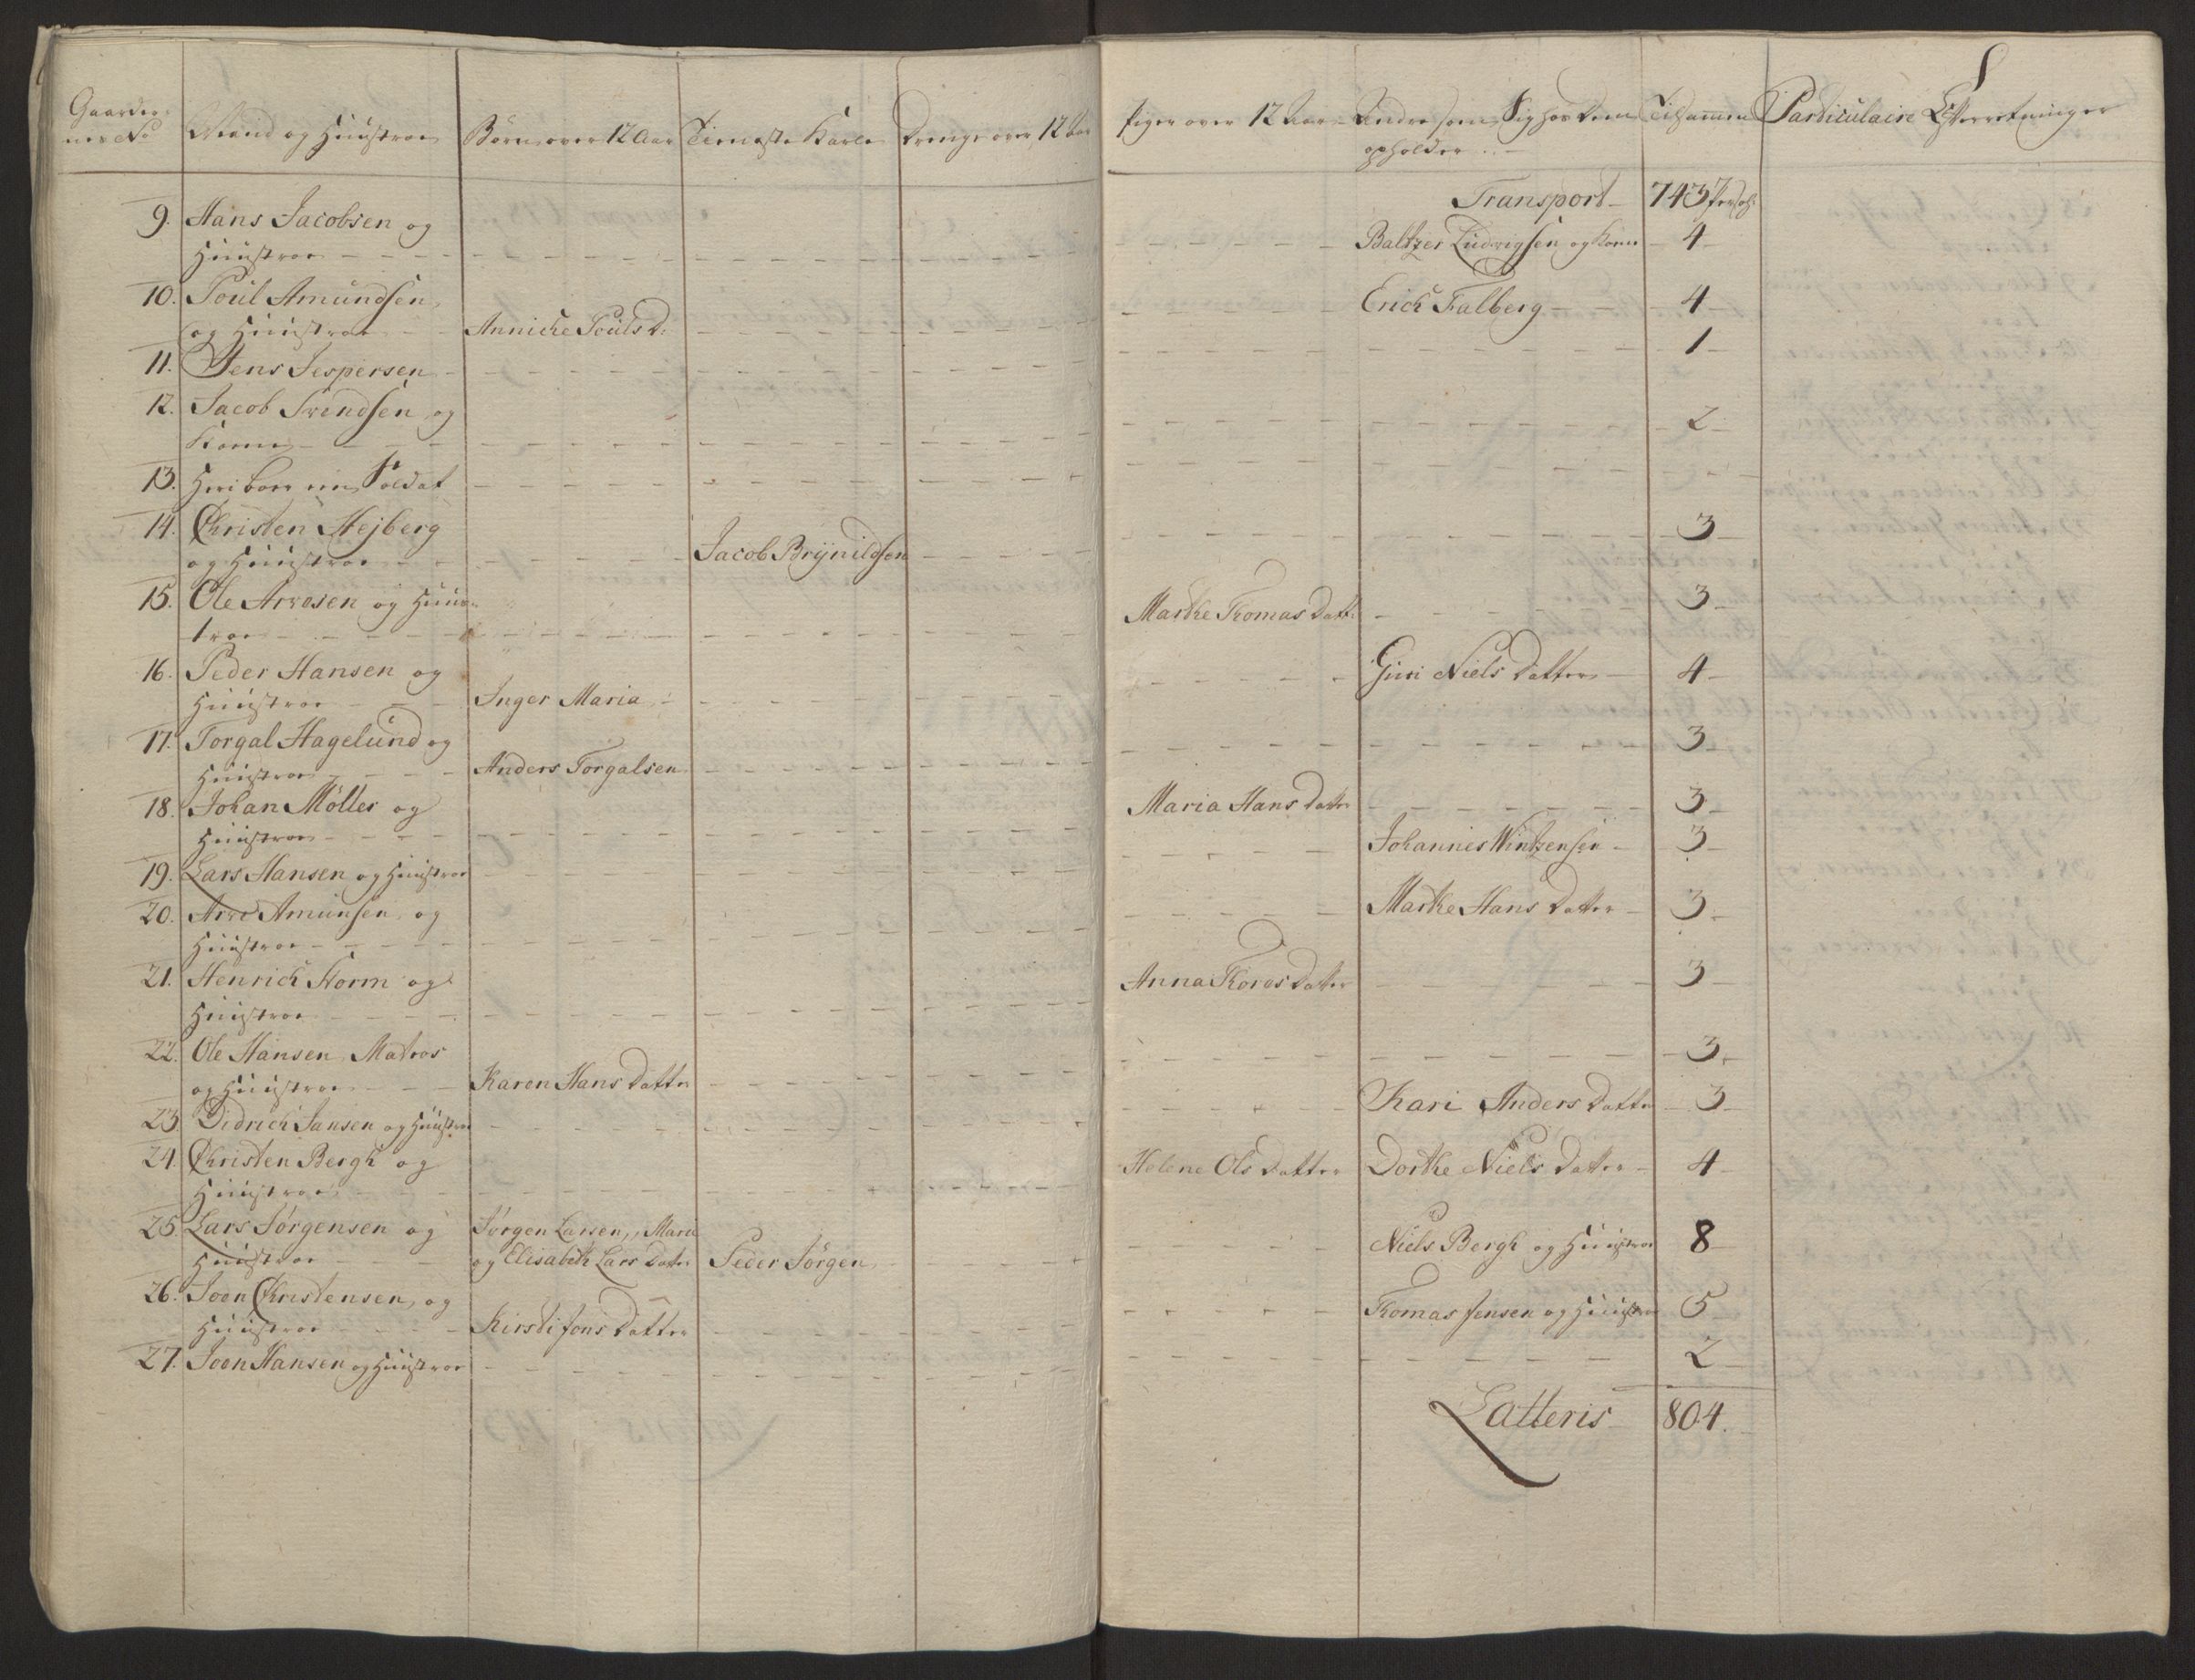 Gaarder-
nes No
Mand og Huustroe
Børn over 12 Aar
Tieneste Karle
Drenge over 12 Aar
Piger over 12 Aar
Andre som Sig hos dem
opholder
Tilsammen
Particulaire Efterretninger
Transport 743 Persoh:
9. Hans Jacobsen og
Huustroe Baltzer Ludvigsen og Kone 4
10. Poul Amundsen
og Huustroe Anniche Pouls D: Erich Falberg 4
11. Jens Jespersen 1
12. Jacob Svendsen og
Kone 2
13. Heri boer een Soldat
14. Christen Hejberg
og Huustroe Jacob Brÿnildsen 3
15. Ole Arvesen og Huus-
troe Marthe Thomas Datt: 3
16. Peder Hansen og
Huustroe Inger Maria Guri Niels Datter 4
17. Torgal Hagelund og
Huustroe Anders Torgalsen 3
18. Johan Møller og
Huustroe Maria Hans Datter 3
19. Lars Hansen og Huustroe Johannes Wintzensen 3
20. Arve Amunsen og
Huustroe Marthe Hans Datter 3
21. Henrich Storm og
Huustroe Anna Thores Datter 3
22. Ole Hansen Matros
og Huustroe Karen Hans Datter 3
23 Didrich Jansen og Huustroe Kari Anders Datter 3
24. Christen Bergh og
Huustroe Helene Ols Datter Dorthe Niels Datter 4
25 Lars Jørgensen og Jørgen Larsen, Marie
Huustroe og Elisabeth Lars Datter Peder Jörgen Niels Bergh og Huustroe 8
26. Joon Christensen og
Huustroe Kirsti Jons Datter Thomas Jensen og Huustroe 5
27. Joon Hansen og Huustroe 2
Latteris 804.